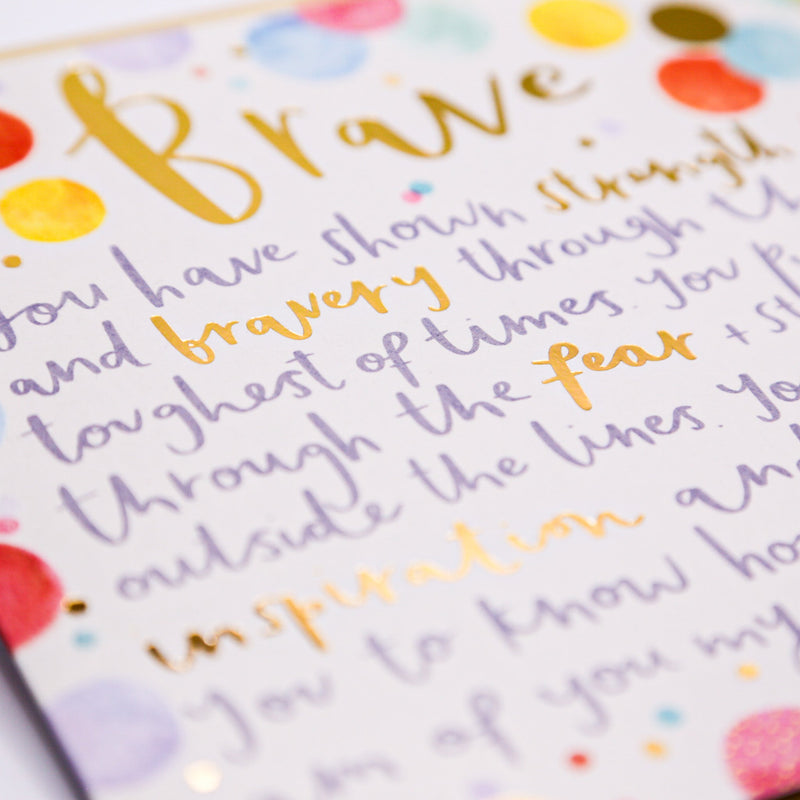 Brave
You have shown strength
and bravery through the
toughest of times. You
through the fear +
outside the lines. You
inspiration and
You to know
of you my